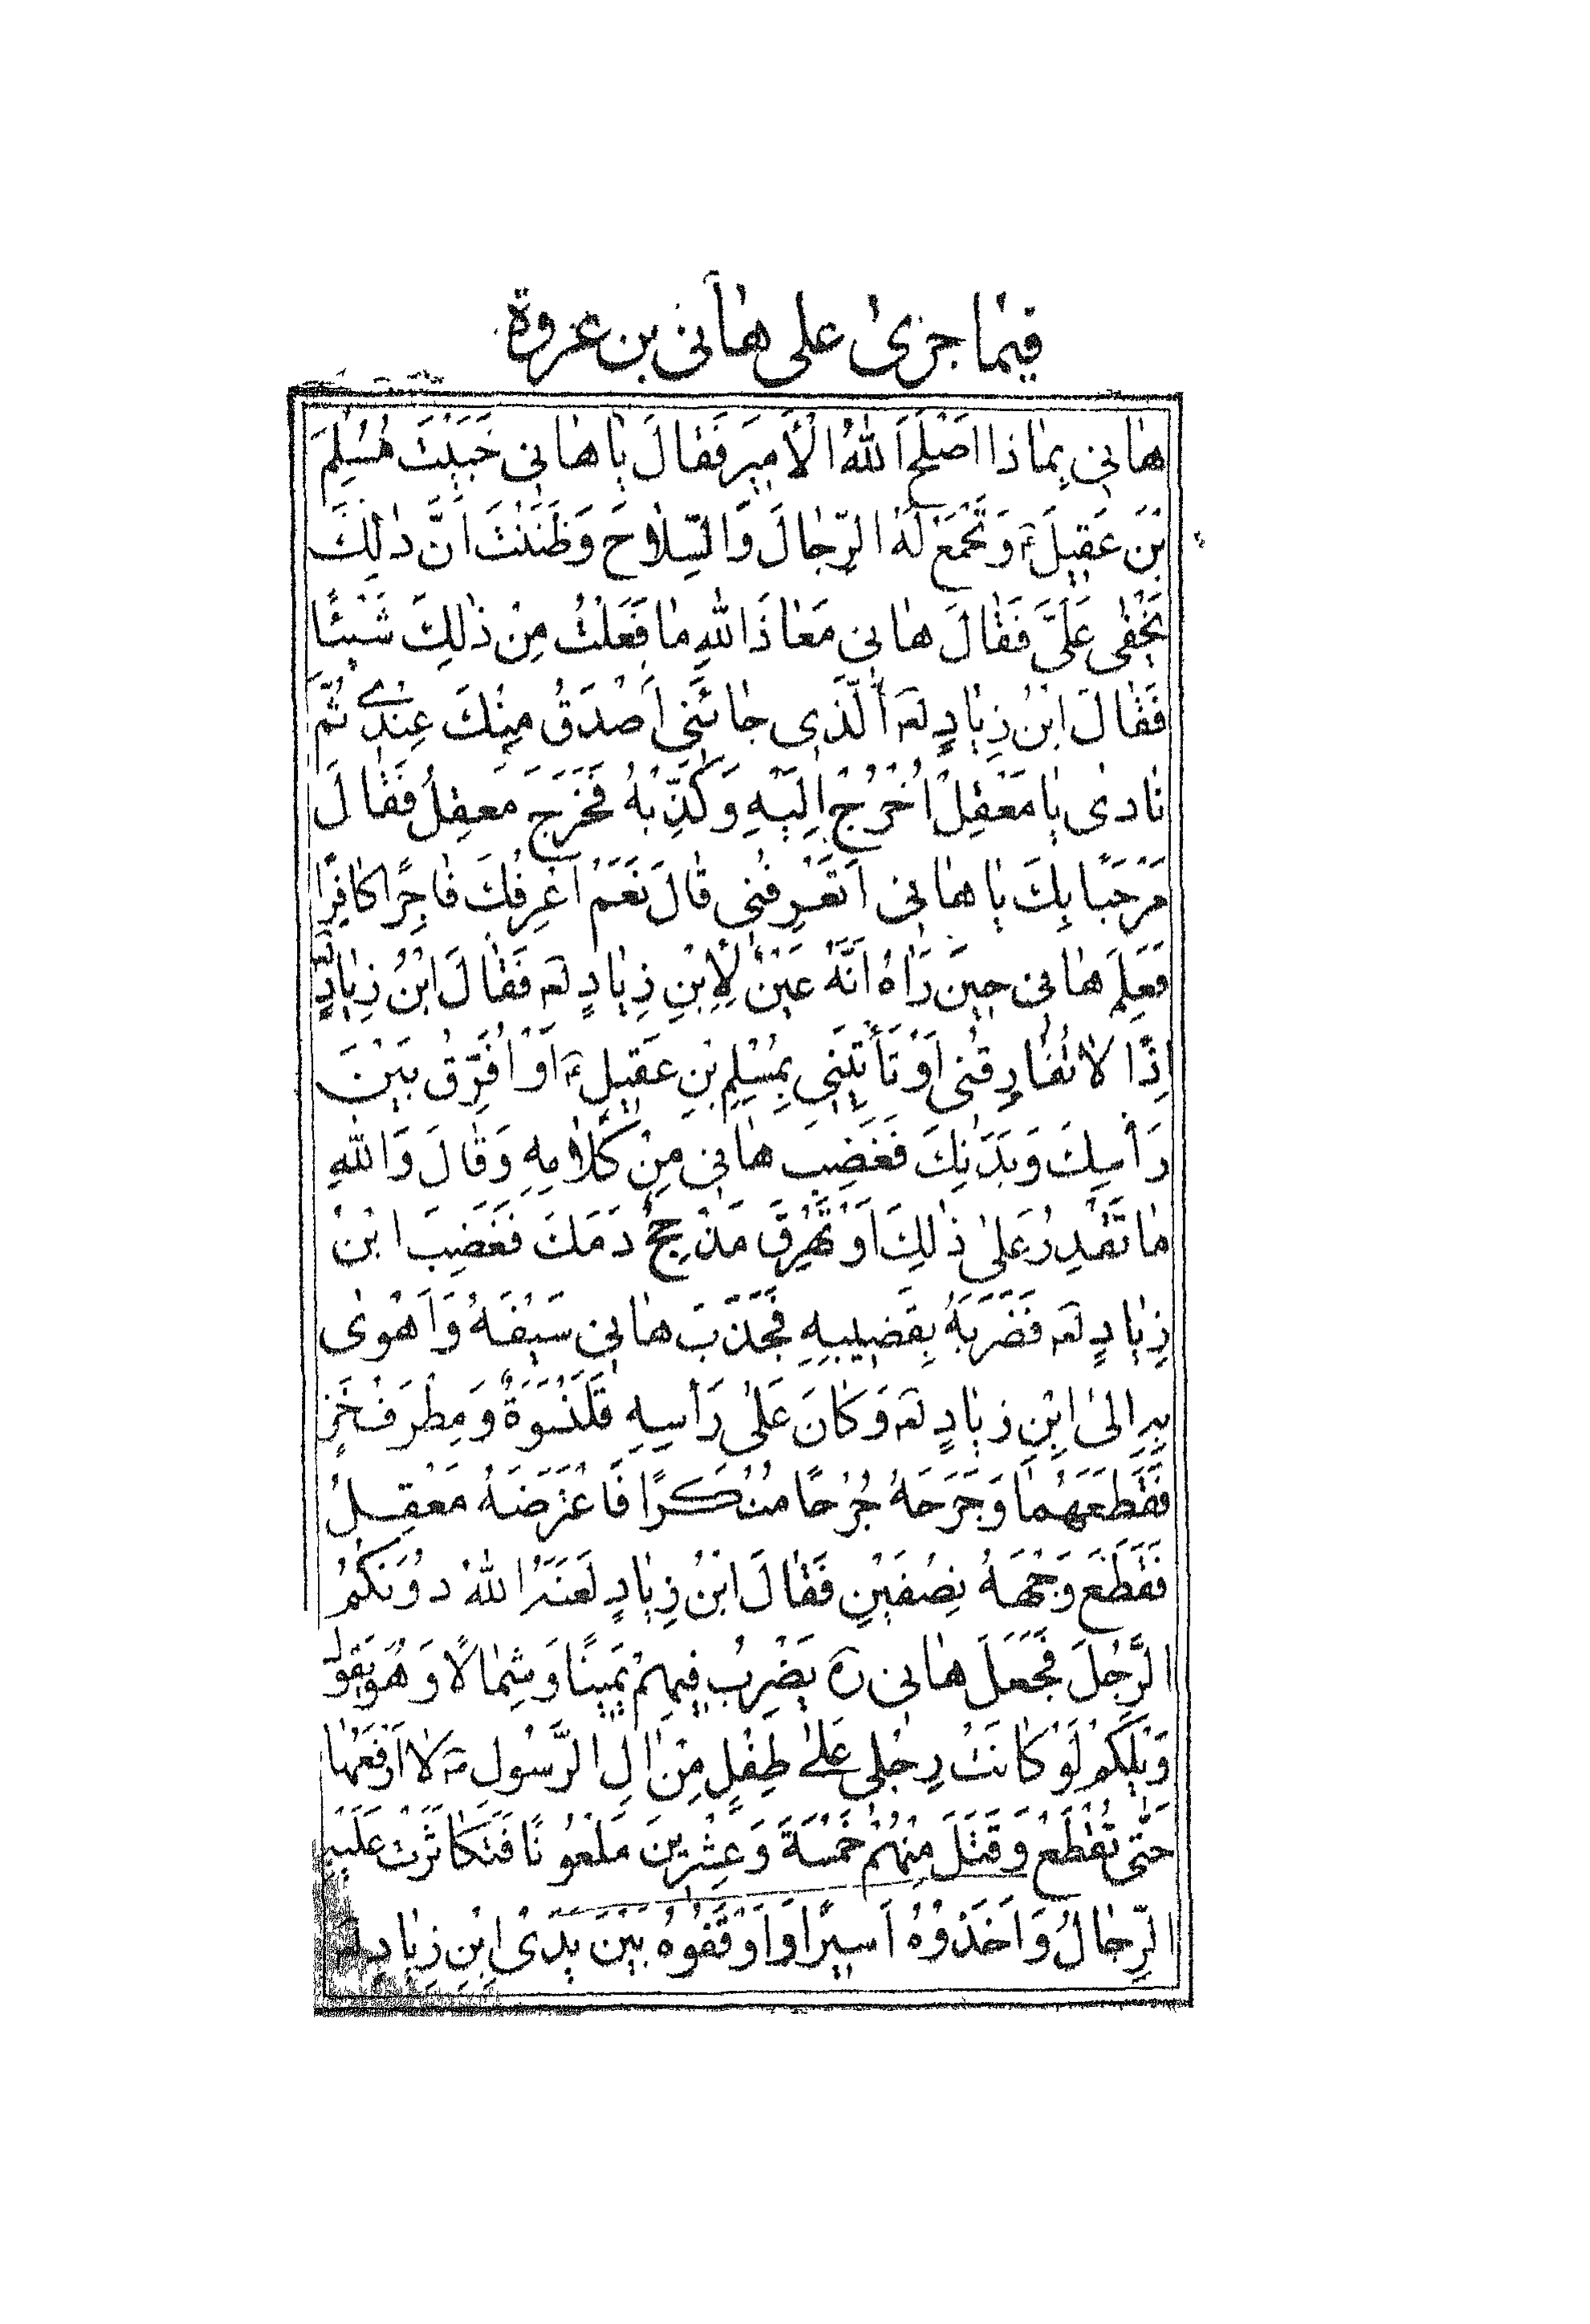 فيما جرى على هانى بن عروة
هانى بماذا اَصْلَحَ اللهُ الْاَميرَ فَقالَ يا هانى خَبَيْتَ مُسْلِمَ
بْنَ عَقيلَ ع وَ تَجْمَعُ لَهُ الرِّجالَ وَالسِّلاحَ وَظَنَنْتَ اَنَّ ذلِكَ
يَخْفى عَلَىَّ فَقالَ هانى مَعاذَ اللهِ ما فَعَلْتُ مِنْ ذلِكَ شَيْئًا
فَقالَ ابْنُ زِيادٍ لعه اَلَّذى جائَنى اَصْدَقُ مِنْكَ عِنْدى ثُمَّ
نادى يا مَعْقِلُ اُخْرُجْ اِلَيْهِ وَكَذِّبْهُ فَخَرَجَ مَعْقِلُ فَقالَ
مَرْحَبًا بِكَ يا هانى اَتَعْرِفُنى قالَ نَعَمْ اَعْرِفُكَ فاجِرًا كافِرًا
فَعَلِمَ هانى حينَ رَاهُ اَنَّهُ عَيْنٌ لِابْنِ زِيادٍ لعه فَقالَ ابْنُ زِيادٍ لعه
اِذًا لا تُفارِقُنى اَوْ تَأْتِيَنى بِمُسْلِمِ بْنِ عَقيلٍ ع اَوْ اُفَرِّقُ بَيْنَ
رَأْسِكَ وَبَدَنِكَ فَغَضِبَ هانى مِنْ كَلامِهِ وَقالَ وَاللهِ
ما تَقْدِرُ عَلى ذلِكَ اَوْ تُهْرِقَ مَذْحِجُ دَمَكَ فَغَضِبَ ابْنُ
زِيادٍ لعه فَضَرَبَهُ بِقَضيبِهِ فَجَذَبَ هانى سَيْفَهُ وَاَهْوى
بِهِ اِلىَ ابْنِ زِيادٍ لعه وَكانَ عَلى رَأْسِهِ قَلَنْسُوَةٌ وَمِطْرَفُ خَزٍّ
فَقَطَعَهُما وَجَرَحَهُ جُرْحًا مُنْكَرًا فَاعْتَرَضَهُ مَعْقِلُ
فَقَطَعَ وَجْهَهُ نِصْفَيْنِ فَقالَ ابْنُ زِيادٍ لَعَنَهُ اللهُ دُونَكُمُ
الرَّجُلَ فَجَعَلَ هانى ره يَضْرِبُ فيهِمْ يَمينًا وَشِمالًا وَهُوَ يَقُولُ
وَيْلَكُمْ لَوْ كانَتْ رِجْلى عَلى طِفْلٍ مِنْ الِ الرَّسُولِ ص لا اَرْفَعُها
حَتّى تُقْطَعَ وَقَتَلَ مِنْهُمْ خَمْسَةَ وَعِشْرينَ مَلْعُونًا فَتَكاثَرَتْ عَلَيْهِ
الرِّجالُ وَاَخَذُوهُ اَسيرًا وَاَوْقَفُوهُ بَيْنَ يَدَىِ ابْنِ زِيادٍ لعه